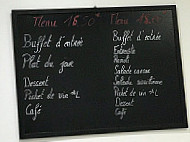 Menu 16.50
Buffet d'entrée
Plat du jour
Dessert
Pichet de vin
Café
Menu
Buffet d'entrée
Entrecôte
Ravioli
Salade
Salade
Pichet de vin
Dessert
Café